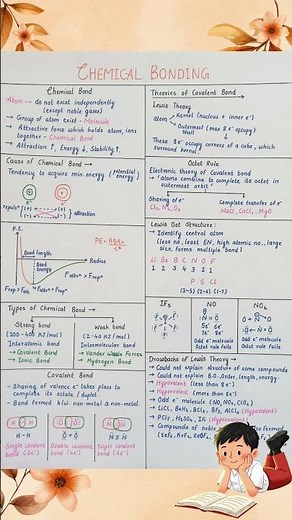 CHEMICAL BONDING
Chemical Bond
Atom → do not exist independently
(except noble gases)
→ Group of atom exist - Molecule
→ Attractive force which holds atom, ions
together - Chemical Bond.
→ Attraction ↑, Energy ↓, Stability ↑.
Cause of Chemical Bond →
Tendency to acquire min. energy (potential energy)
repulsn
attraction
P.E.
Bond length
Bond energy
Radius
Types of Chemical Bond →
Strong bond
(200-400 KJ/mol)
Interatomic bond
→ Covalent Bond
→ Ionic Bond
Weak bond
(2-40 KJ/mol)
Intermolecular bond
→ Vander Waals Forces
→ Hydrogen Bond
Covalent Bond
- Sharing of valence e⁻ takes place to
complete its octate / duplet
- Bond formed b/w non-metal & non-metal.
H H
O O
N N
H-H
O=O
N≡N
Single covalent bond (2e⁻)
Double covalent bond (4e⁻)
Triple covalent bond (6e⁻)
Theories of Covalent Bond →
Lewis Theory
Atom
Kernel (nucleus + inner e⁻)
Outermost (max 8 e⁻ occupy)
Shell
→ These 8e⁻ occupy corners of a cube, which
surround kernel
Octet Rule
Electronic theory of Covalent bond
→ "atoms combine to complete its octet in
outermost orbit"
Sharing of e⁻
Cl₂, N₂, O₂
Complete transfer of e⁻
NaCl, CaCl₂, MgO
Lewis Dot Structure:
→ Identify central atom
(less no., least EN, high atomic no., large
size, forms multiple bond)
Li Be B C N O F
1 2 3 4 3 2 1
P S Cl
(3-5) (2-6) (1-7)
IF₅
NO
NO₂
N = O
5e⁻ 6e⁻
7e⁻ 8e⁻
Odd e⁻ molecule
Octet rule fails
Odd e⁻ molecule
Octet rule fails
Drawbacks of Lewis Theory →
→ Could not explain structure of some compounds
→ Could not explain B.O., Order, length, energy.
→ Hypovalent (less than 8e⁻)
→ Hypervalent (more than 8e⁻)
→ Odd e⁻ molecule (NO, NO₂, ClO₂)
→ LiCl, BeH₂, BCl₃, BF₃, AlCl₃ (Hypovalent)
→ PCl₅, H₂SO₄, (Hypervalent)
→ Compounds of noble
(XeF₂, KrF₂, XeOF₂